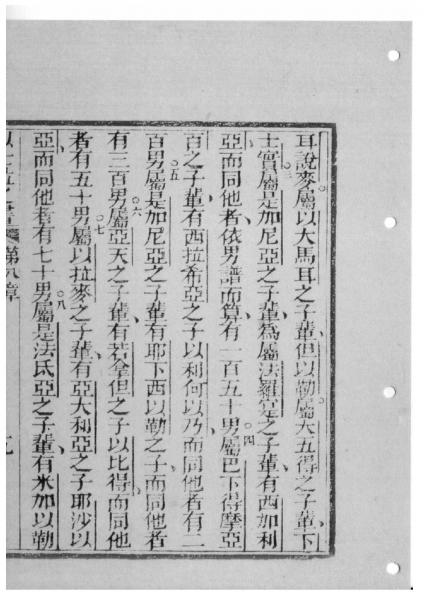 耳說麥屬以大馬耳之子輩但以勒屬大五得之子輩下
三
士實屬是加尼亞之子輩為屬法羅是之子輩有西加利
亞而同他者依男譜而算有一百五十男屬巴下得摩亞
四
百之子輩有西拉希亞之子以利何以乃而同他者有二
五
百男屬是加尼亞之子輩有耶下西以勒之子而同他者
六
有三百男屬亞天之子輩有若拿但之子以比得而同他
七
者有五十男屬以拉麥之子輩有亞大利亞之子耶沙以
八
亞而同他者有七十男屬是法氐亞之子輩有米加以勒
第八章
七